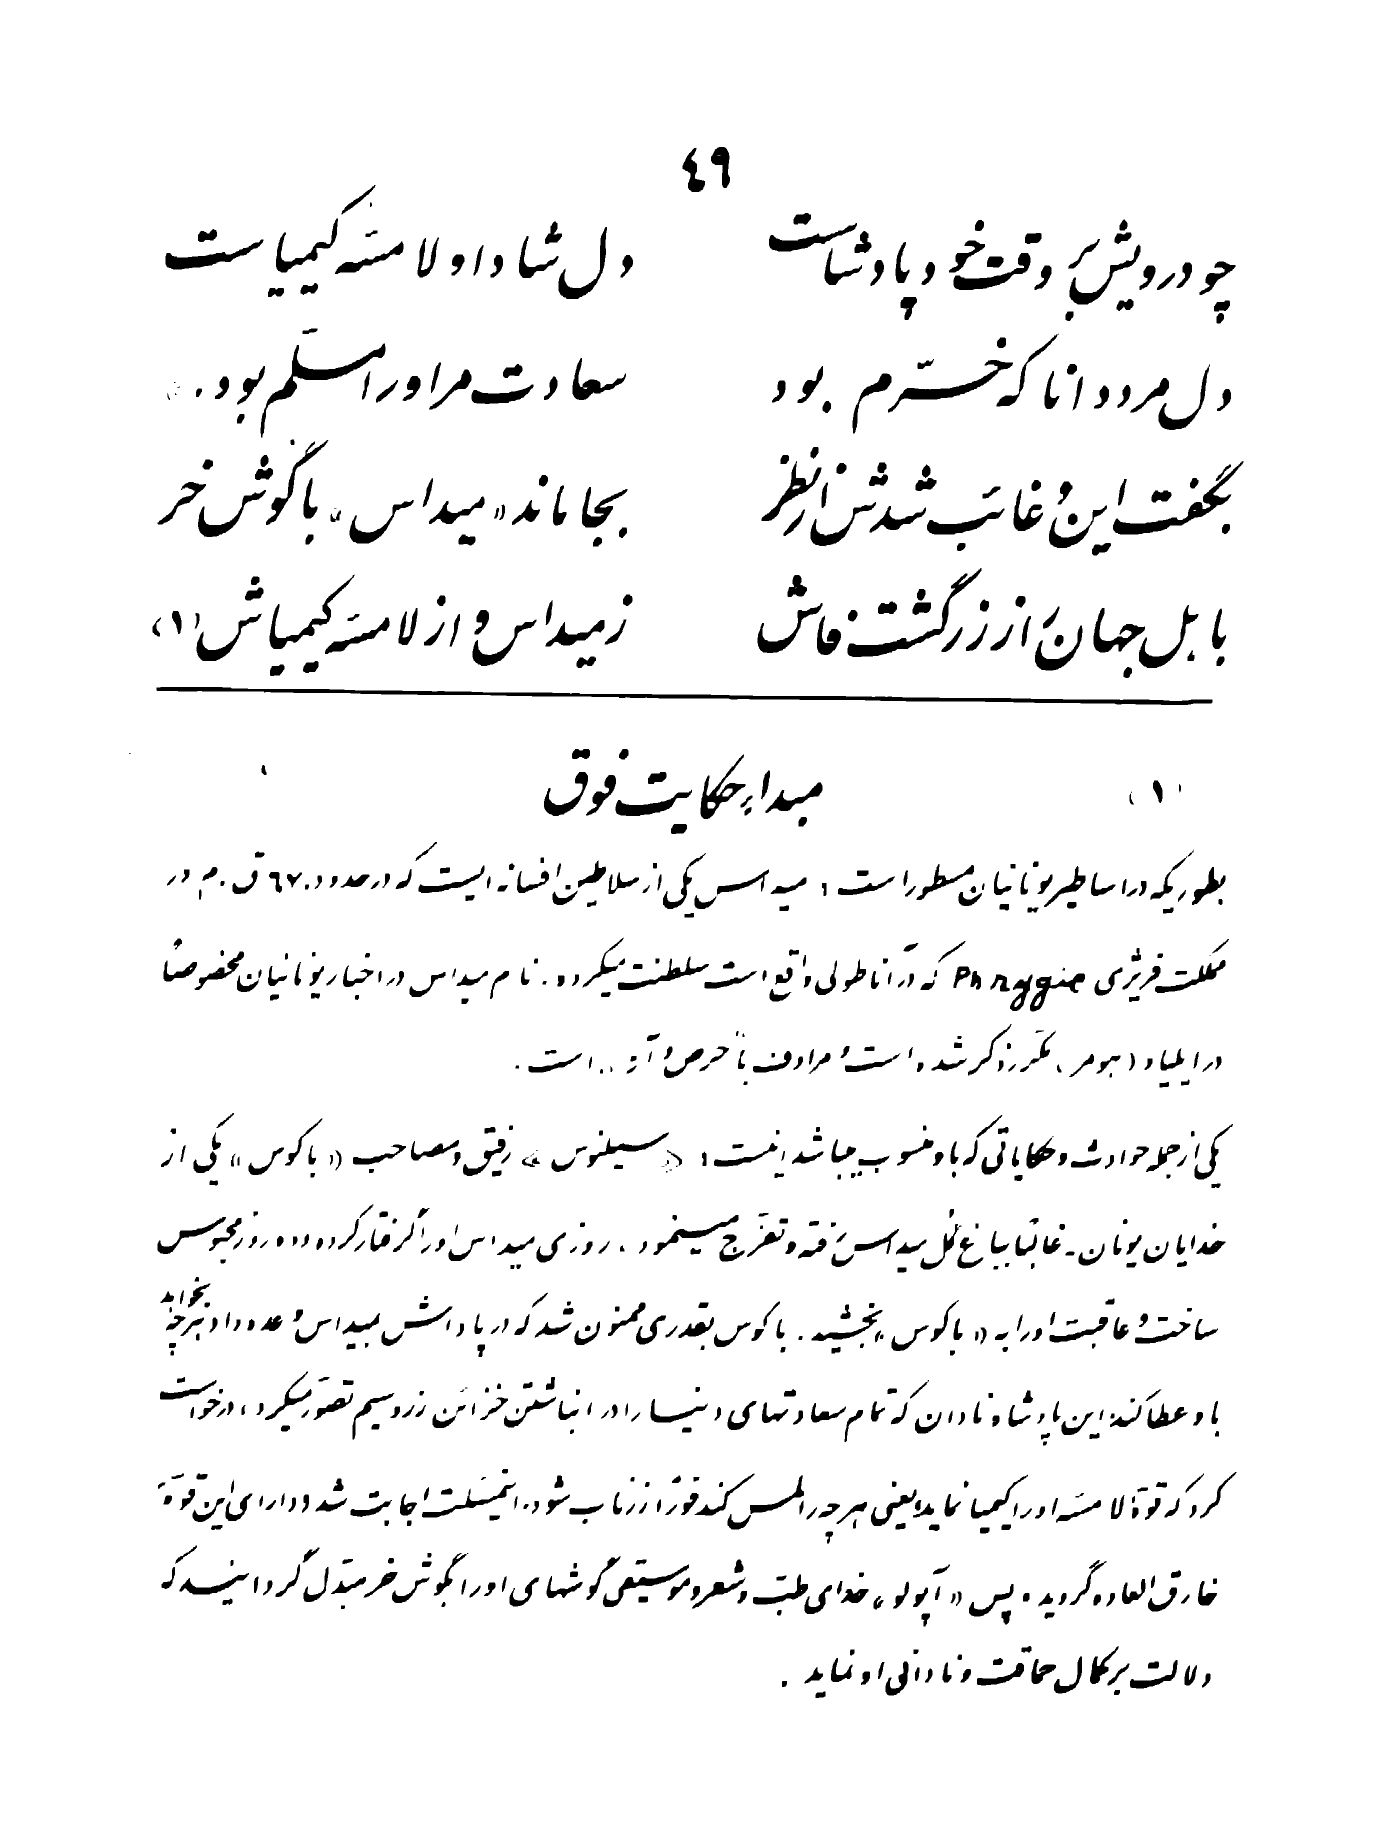 ٤٩
چو درویش بر وقت خود پادشاست دل شاد او لامسَه کیمیاست
دل مرد دانا که خسّرم بود سعادت مر او را مسلّم بود.
بگفت این وُ غائب شدش از نظر بجا ماند «میداس» با گوش خر
باهل جهان راز زرگشت فاش زمیداس وُ از لامسَه کیمیاش (١)
(١) مبداءِ حکایت فوق
بطوریکه در اساطیر یونانیان مسطور است ؛ میداس یکی از سلاطین افسانه ایست که در حدود ٦٧٠ ق . م در
مملکت فریژی Phrygie که در آناطولی واقع است سلطنت میکرده . نام میداس در اخبار یونانیان مخصوصاً
در ایلیاد (هومر) مکرّر ذکر شده است وُ مرادف با «حرص وُ آز» است .
یکی از جمله حوادث و حکایاتی که باو منسوب میباشد اینست ؛ «سیلنوس» رفیق و مصاحب «باکوس» یکی از
خدایان یونان - غالباً بباغ گل میداس رفته و تفرّج مینمود ، روزی میداس او را گرفتار کرده و ده روز محبوس
ساخت وُ عاقبت او را به «باکوس» بخشید . باکوس بقدری ممنون شد که در پاداش بمیداس وُعده داد هرچه بخواهد
باو عطا کند؛ این پادشاه نادان که تمام سعادتهای دنیا را در انباشتن خزائن زر و سیم تصوّر میکرد ، درخواست
کرد که قوّهٔ لامسَه او را کیمیا نماید؛ یعنی هر چه را لمس کند فوراً زر ناب شود . این مسئلت اجابت شد و دارای این قوّهٔ
خارق العاده گردید . پس «آپولو» خدای طبّ و شعر و موسیقی گوشهای او را بگوش خر مبدّل گردانید که
دلالت بر کمال حماقت و نادانی او نماید .